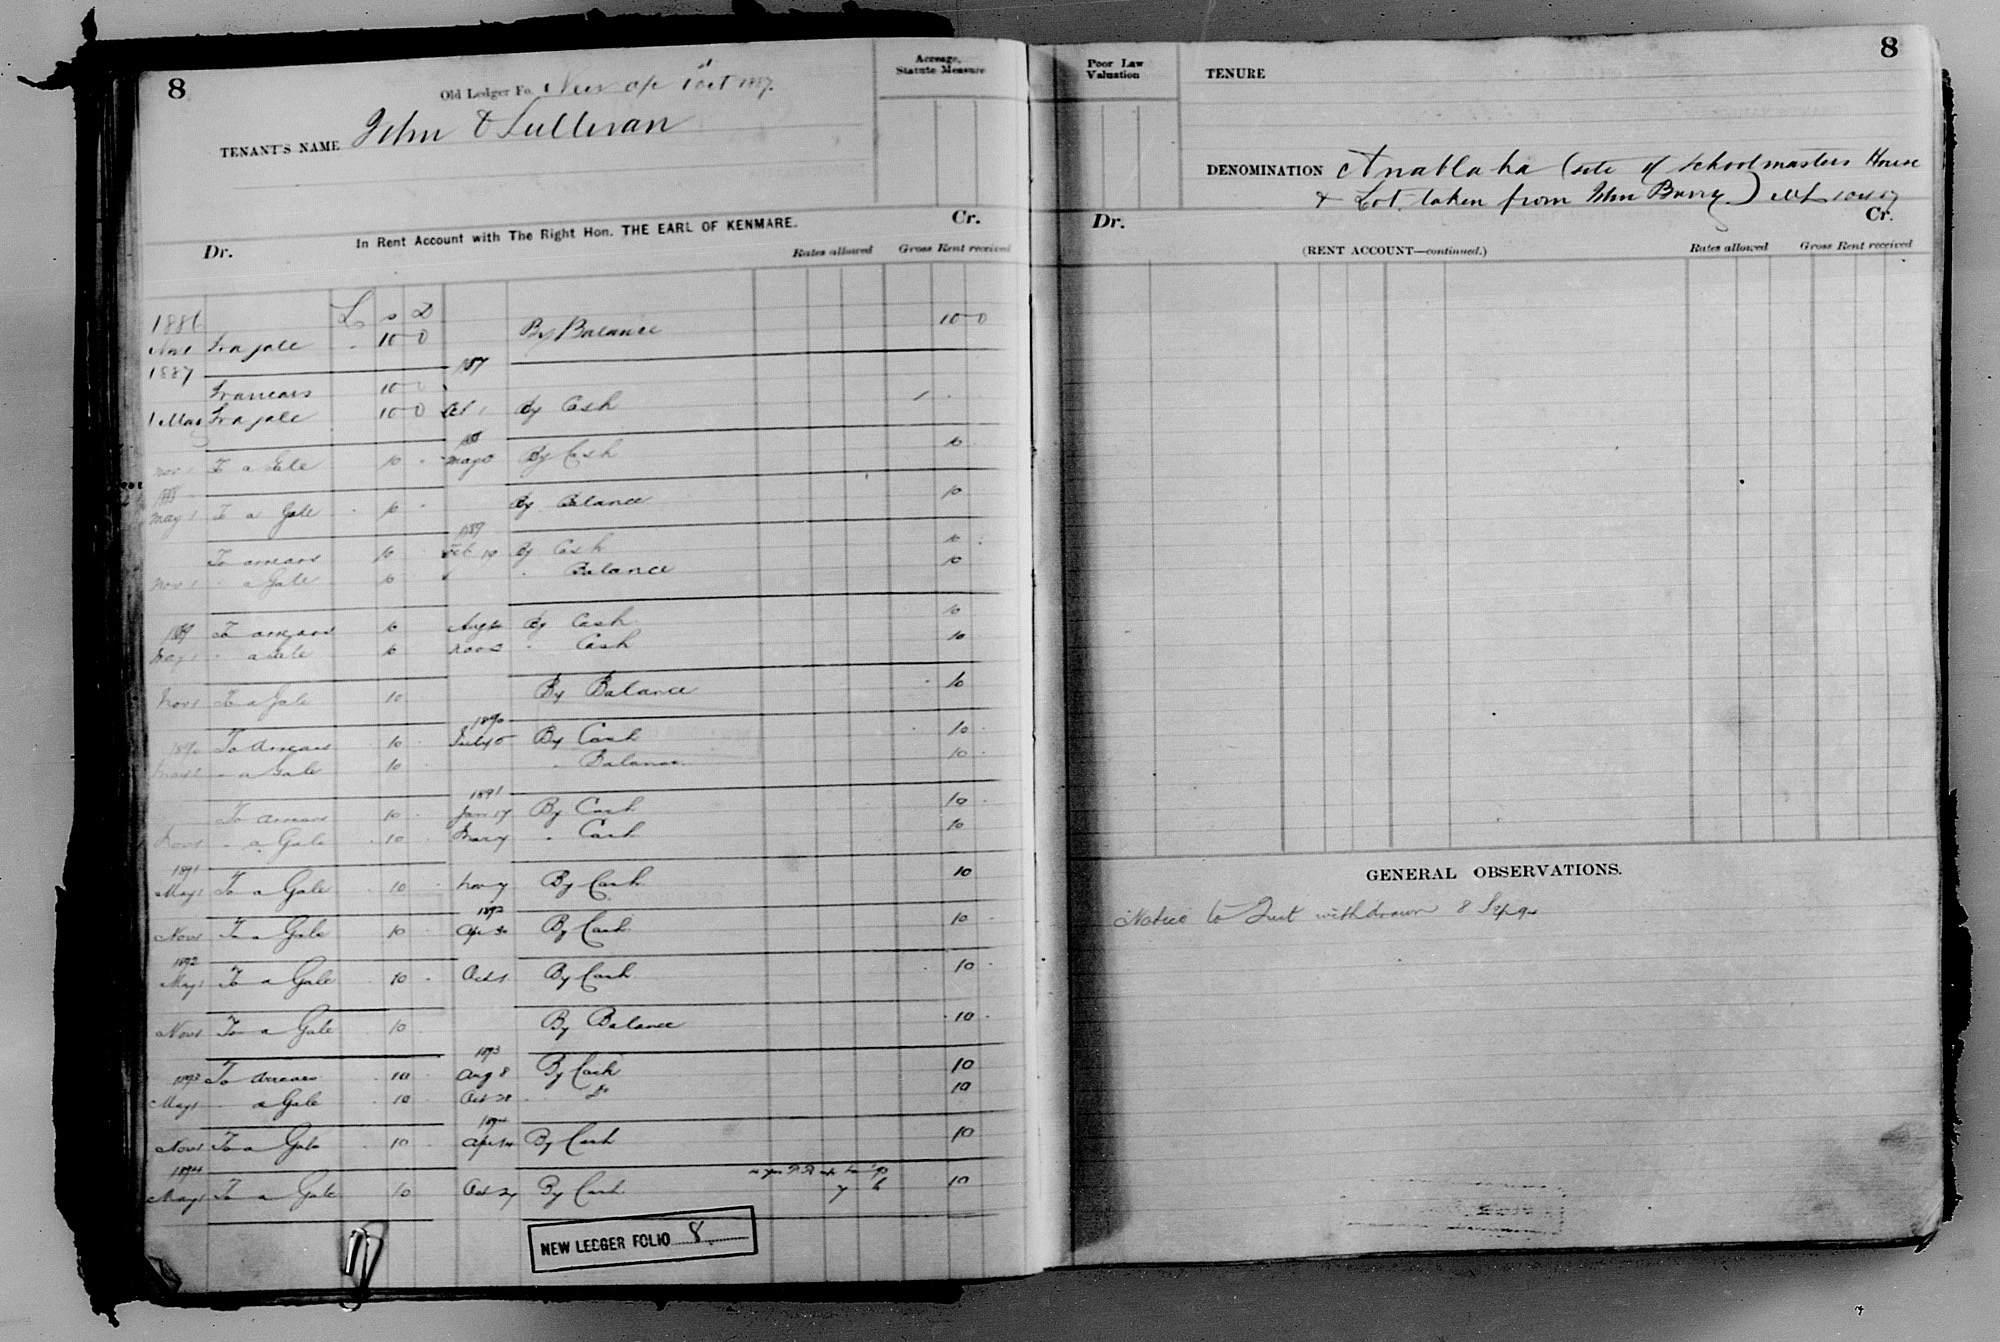 8
Old Ledger Fo. New a/c 1 Oct 1887.
TENANT'S NAME John O Sullivan
Acreage, Statute Measure
In Rent Account with The Right Hon. THE EARL OF KENMARE.
Dr. Cr.
Rates allowed Gross Rent received
1886 £ s D
Nov 1 To a gale 10 0 By Balance 10 0
1887 1887
To arrears 10 0
1 May To a gale 10 0 Oct 1 By Cash 1
1888
Nov 1 To a Gale 10 May By Cash 10
1888
May 1 To a Gale 10 By Balance 10
1889
To arrears 10 Feb 10 By Cash 10
Nov 1 " a Gale 10 " Balance 10
1889 To arrears 10 Aug By Cash 10
May 1 " a Gale 10 Nov 2 " Cash 10
Nov 1 To a Gale 10 By Balance 10
1890
1890 To Arrears 10 July 5 By Cash 10
May 1 " a Gale 10 " Balance 10
1891
To Arrears 10 Jan 17 By Cash 10
Nov 1 " a Gale 10 May 7 " Cash 10
1891
May 1 To a Gale 10 Nov 7 By Cash 10
1892
Nov 1 To a Gale 10 Apr 30 By Cash 10
1892
May 1 To a Gale 10 Oct 1 By Cash 10
Nov 1 To a Gale 10 By Balance 10
1893
1893 To Arrears 10 Aug 8 By Cash 10
May 1 " a Gale 10 Oct 28 " Do 10
1894
Nov 1 To a Gale 10 Apr 14 By Cash 10
1894
May 1 To a Gale 10 Oct 27 By Cash 7 6 10
NEW LEDGER FOLIO 8
8
Poor Law Valuation
TENURE
DENOMINATION Anablaha (site of Schoolmasters House
& Lot taken from John Barry)
Dr. Cr.
(RENT ACCOUNT—continued.)
Rates allowed Gross Rent received
GENERAL OBSERVATIONS.
Notice to Quit withdrawn 8 Sep 94